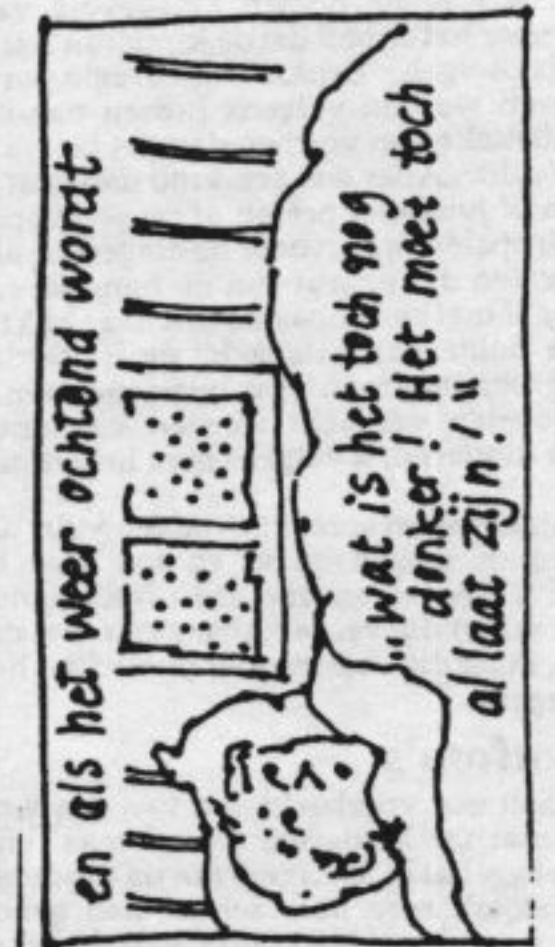 en als het weer ochtend wordt
„wat is het toch nog
donker! Het moet toch
al laat zijn!"